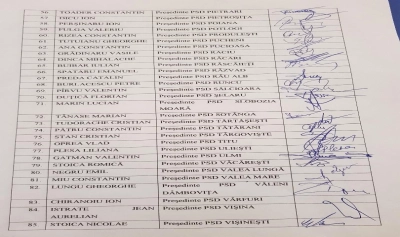 56 TOADER CONSTANTIN Președinte PSD PIETRARI
57 DICU ION Președinte PSD PIETROȘIȚA
58 PERȘINARU ION Președinte PSD POIANA
59 FULGA VALERIU Președinte PSD POTLOGI
60 RIZEA CONSTANTIN Președinte PSD PRODULEȘTI
61 TUTUIANU GHEORGHE Președinte PSD PUCHENI
62 ANA CONSTANTIN Președinte PSD PUCIOASA
63 GRĂDINARU VASILE Președinte PSD RACIU
64 DINCĂ MIHALACHE Președinte PSD RĂCARI
65 BURLAN JULIAN Președinte PSD RĂSCĂEȚI
66 SPĂTARU EMANUEL Președinte PSD RĂZVAD
67 PREDA CATALIN Președinte PSD RÂU ALB
68 BURLACESCU PETRE Președinte PSD RUNCU
69 PÎRVU VALENTIN Președinte PSD SĂLCIOARA
70 FLORIAN Președinte PSD ȘELARU
71 MARIN LUCIAN Președinte PSD SLOBOZIA
MOARĂ
72 TĂNASE MARIAN Președinte PSD ȘOTÂNGA
73 TUDORACHE CRISTIAN Președinte PSD TĂRTĂȘEȘTI
74 PĂTRU CONSTANTIN Președinte PSD TĂTĂRANI
75 STAN CRISTIAN Președinte PSD TÂRGOVIȘTE
76 OPREA VLAD Președinte PSD TITU
77 PLESA LILIANA Președinte PSD ULIEȘTI
78 GATMAN VALENTIN Președinte PSD ULMI
79 STOICA ROMICĂ Președinte PSD VĂCĂREȘTI
80 NEGRU EMIL Președinte PSD VALEA LUNGĂ
81 MIU CONSTANTIN Președinte PSD VALEA MARE
82 LUNGU GHEORGHE Președinte PSD VĂLENI
DÂMBOVIȚA
83 CHIRANOIU ION Președinte PSD VÂRFURI
84 ISTRATE JEAN Președinte PSD VIȘINA
AURELIAN
85 STOICA NICOLAE Președinte PSD VIȘINEȘTI